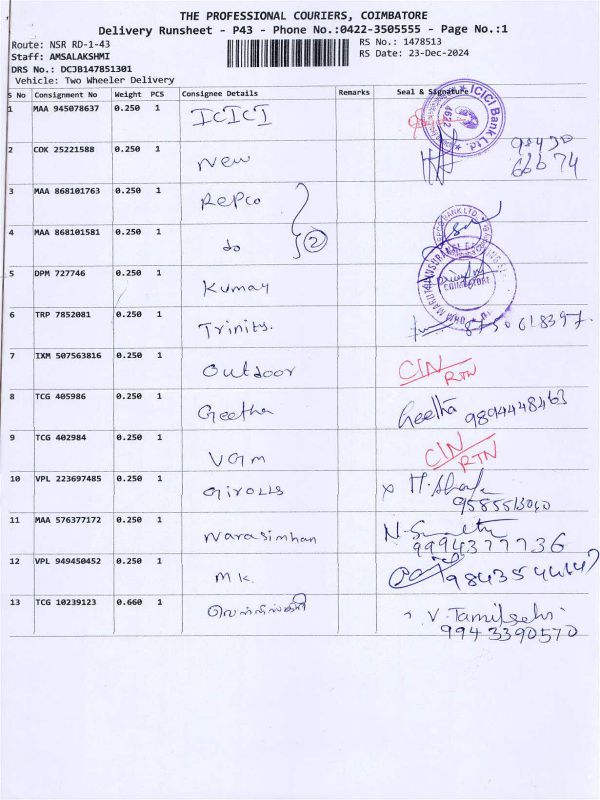 THE PROFESSIONAL COURIERS, COIMBATORE
Delivery Runsheet - P43 - Phone No.:0422-3505555 - Page No.:1
Route: NSR RD-1-43 RS No.: 1478513
Staff: AMSALAKSHMI RS Date: 23-Dec-2024
DRS No.: DCJB147851301
Vehicle: Two Wheeler Delivery
S No Consignment No Weight PCS Consignee Details Remarks Seal & Signature
1 MAA 945078637 0.250 1 ICICI ICICI Bank Ltd. 4622
2 COK 25221588 0.250 1 New 98430
66674
3 MAA 868101763 0.250 1 Repco
4 MAA 868101581 0.250 1 do 2 REPCO BANK LTD.
COIMBATORE
5 DPM 727746 0.250 1 Kumar
6 TRP 7852081 0.250 1 Trinity. 8750618397.
7 IXM 507563816 0.250 1 Outdoor CIN
RTN
8 TCG 405986 0.250 1 Geetha Geetha 9894448463
9 TCG 402984 0.250 1 VGM CIN
RTN
10 VPL 223697485 0.250 1 Girolls
9585513040
11 MAA 576377172 0.250 1 Narasimhan
9994377736
12 VPL 949450452 0.250 1 MK.
13 TCG 10239123 0.660 1 V. Tamilselvi
9943390570